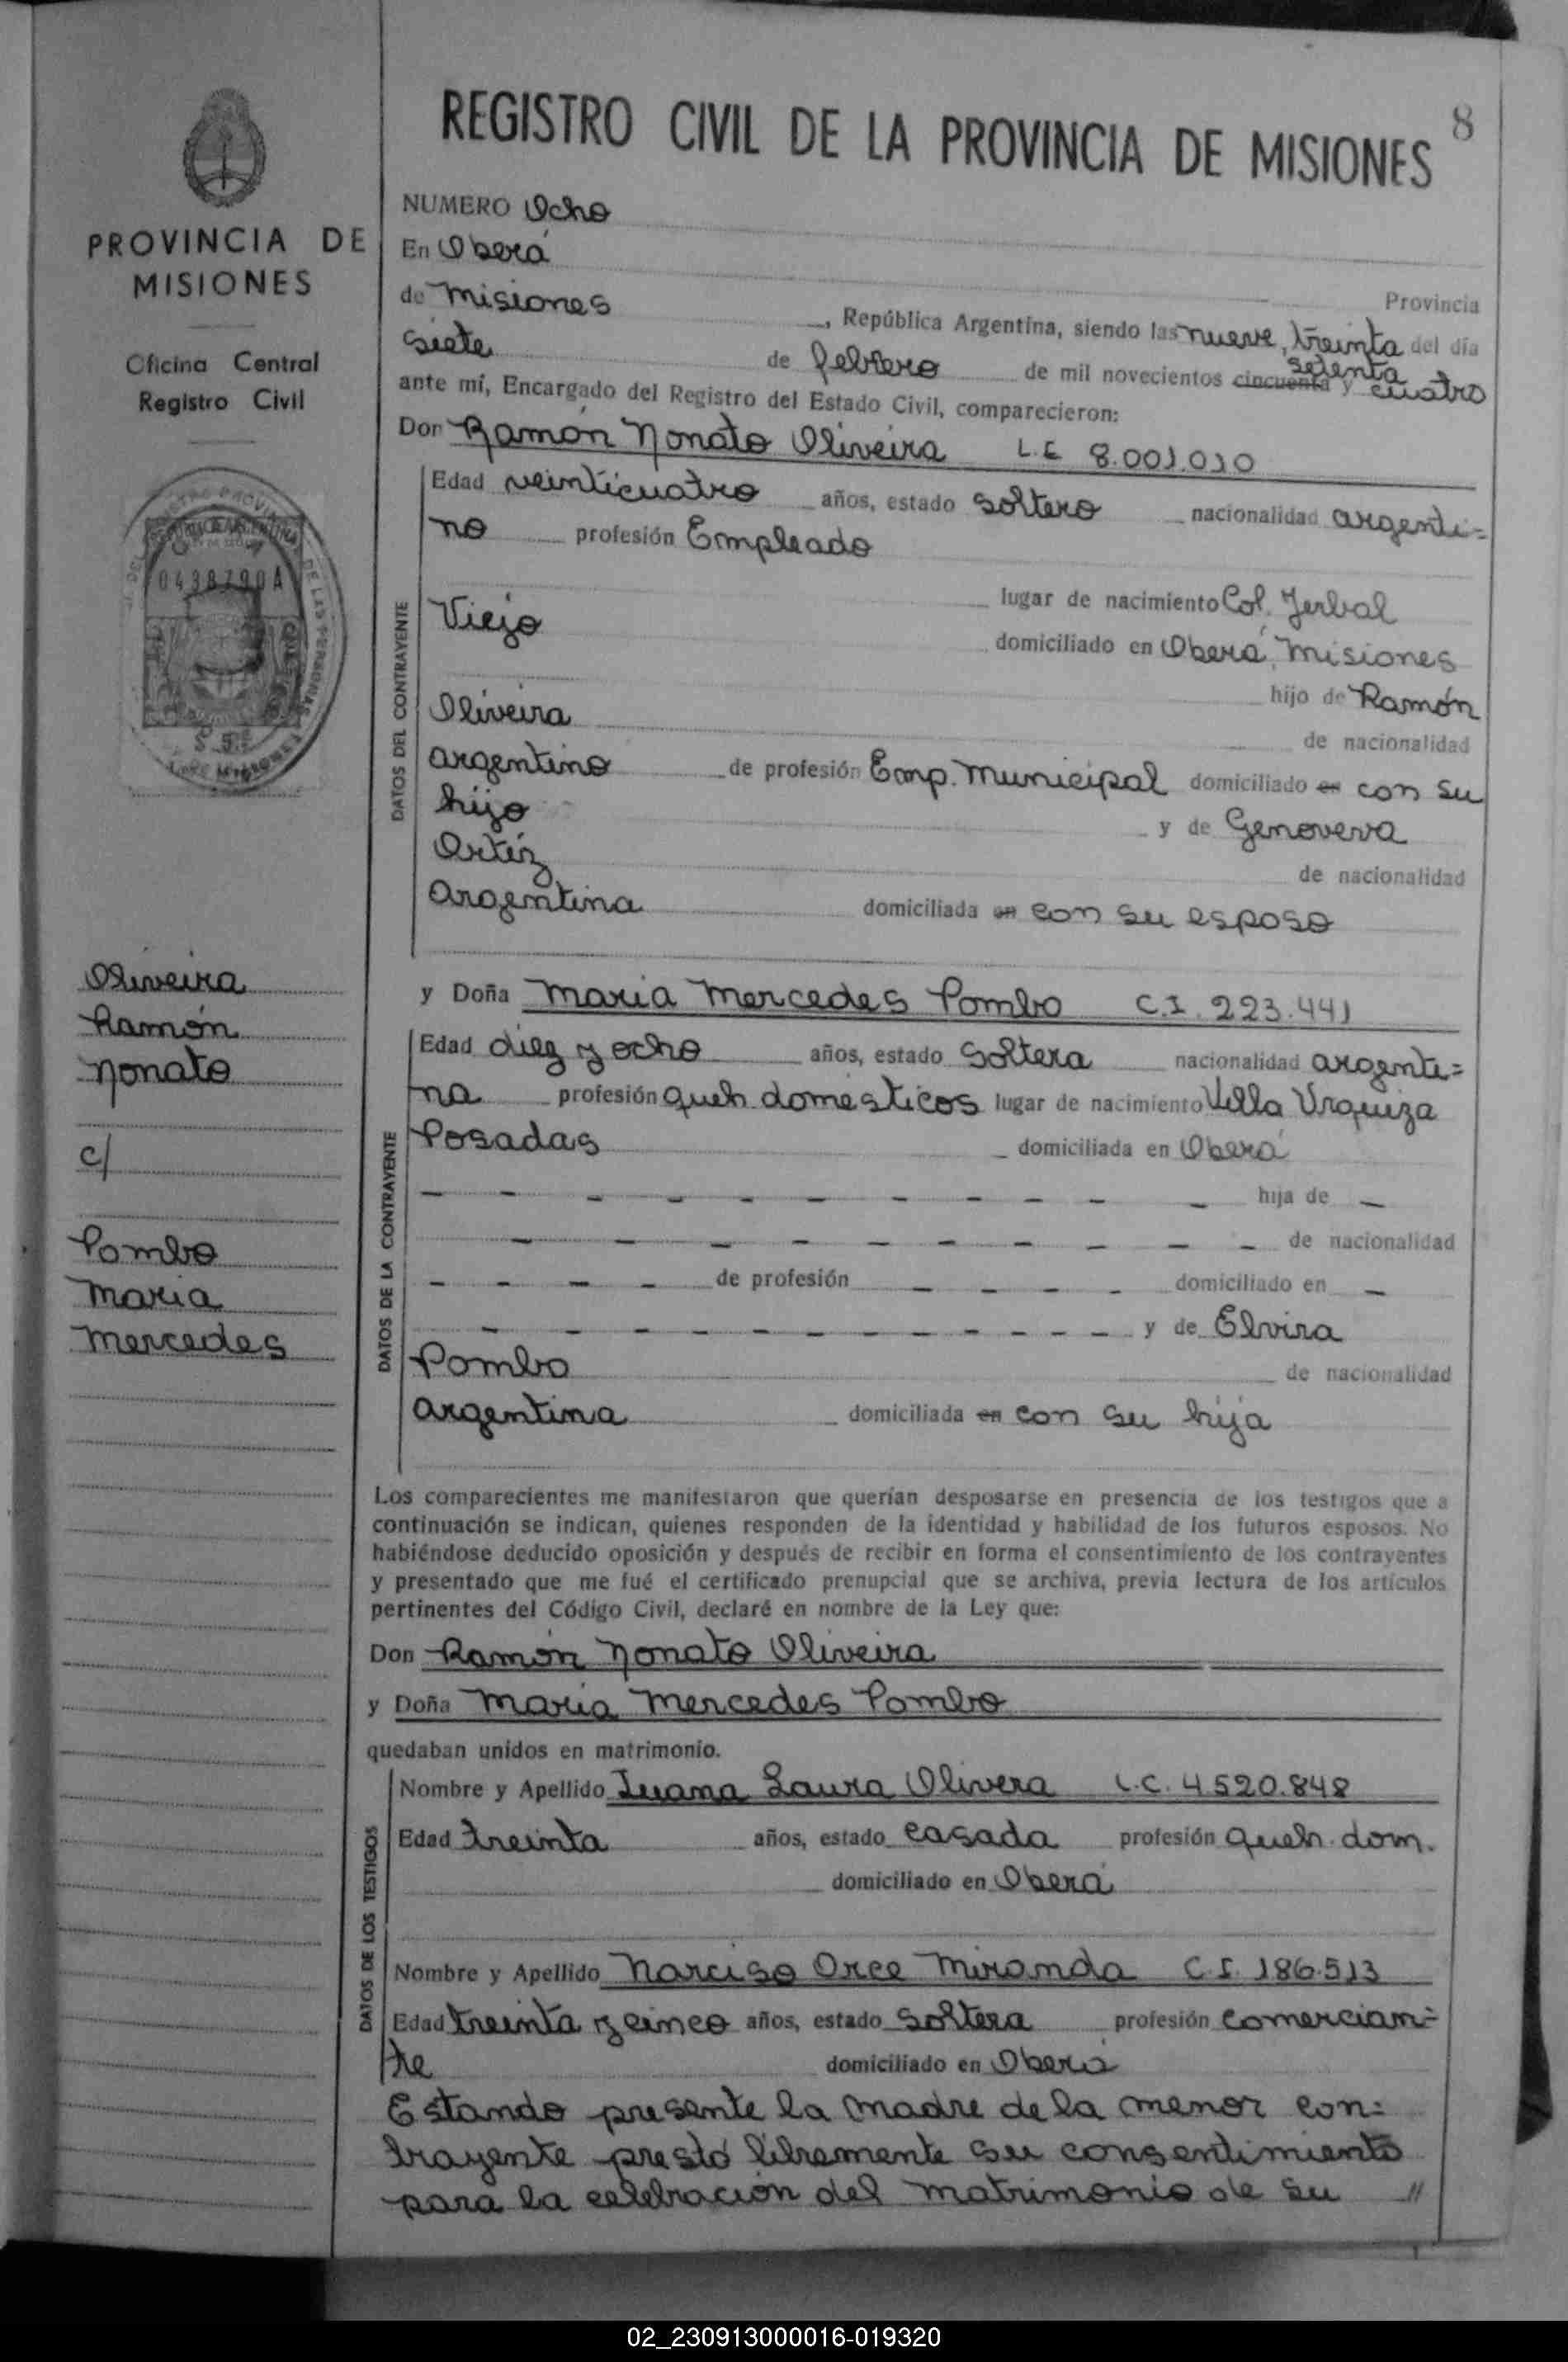 REGISTRO CIVIL DE LA PROVINCIA DE MISIONES
8
PROVINCIA DE
MISIONES
Oficina Central
Registro Civil
0438790A
Oliveira
Ramón
Nonato
c/
Pombo
Maria
Mercedes
NUMERO Ocho
En Oberá
Provincia
de Misiones, República Argentina, siendo las nueve, treinta del día
siete de febrero de mil novecientos cincuenta setenta y cuatro
ante mí, Encargado del Registro del Estado Civil, comparecieron:
Don Ramón Nonato Oliveira L.E 8.001.010
DATOS DEL CONTRAYENTE
Edad veinticuatro años, estado soltero nacionalidad argenti=
no profesión Empleado
lugar de nacimiento Col. Yerbal
Viejo domiciliado en Oberá, Misiones
hijo de Ramón
Oliveira de nacionalidad
argentino de profesión Emp. Municipal domiciliado en con su
hijo y de Genoveva
Ortíz de nacionalidad
Argentina domiciliada en con su esposo
y Doña Maria Mercedes Pombo C.I. 223.441
DATOS DE LA CONTRAYENTE
Edad diez y ocho años, estado soltera nacionalidad argenti=
na profesión queh. domésticos lugar de nacimiento Villa Urquiza
Posadas domiciliada en Oberá
— — — — — — — — — — — hija de —
— — — — — — — — — — de nacionalidad
— — — — de profesión — — — — domiciliado en —
— — — — — — — — — — y de Elvira
Pombo de nacionalidad
argentina domiciliada en con su hija
Los comparecientes me manifestaron que querían desposarse en presencia de los testigos que a
continuación se indican, quienes responden de la identidad y habilidad de los futuros esposos. No
habiéndose deducido oposición y después de recibir en forma el consentimiento de los contrayentes
y presentado que me fué el certificado prenupcial que se archiva, previa lectura de los artículos
pertinentes del Código Civil, declaré en nombre de la Ley que:
Don Ramón Nonato Oliveira
y Doña Maria Mercedes Pombo
quedaban unidos en matrimonio.
DATOS DE LOS TESTIGOS
Nombre y Apellido Juana Laura Olivera L.C. 4.520.848
Edad treinta años, estado casada profesión queh. dom.
domiciliado en Oberá
Nombre y Apellido Narciso Orce Miranda C.I. 186.513
Edad treinta y cinco años, estado soltera profesión comercian=
te domiciliado en Oberá
Estando presente la madre de la menor con=
trayente prestó libremente su consentimiento
para la celebración del matrimonio de su //
02_230913000016-019320